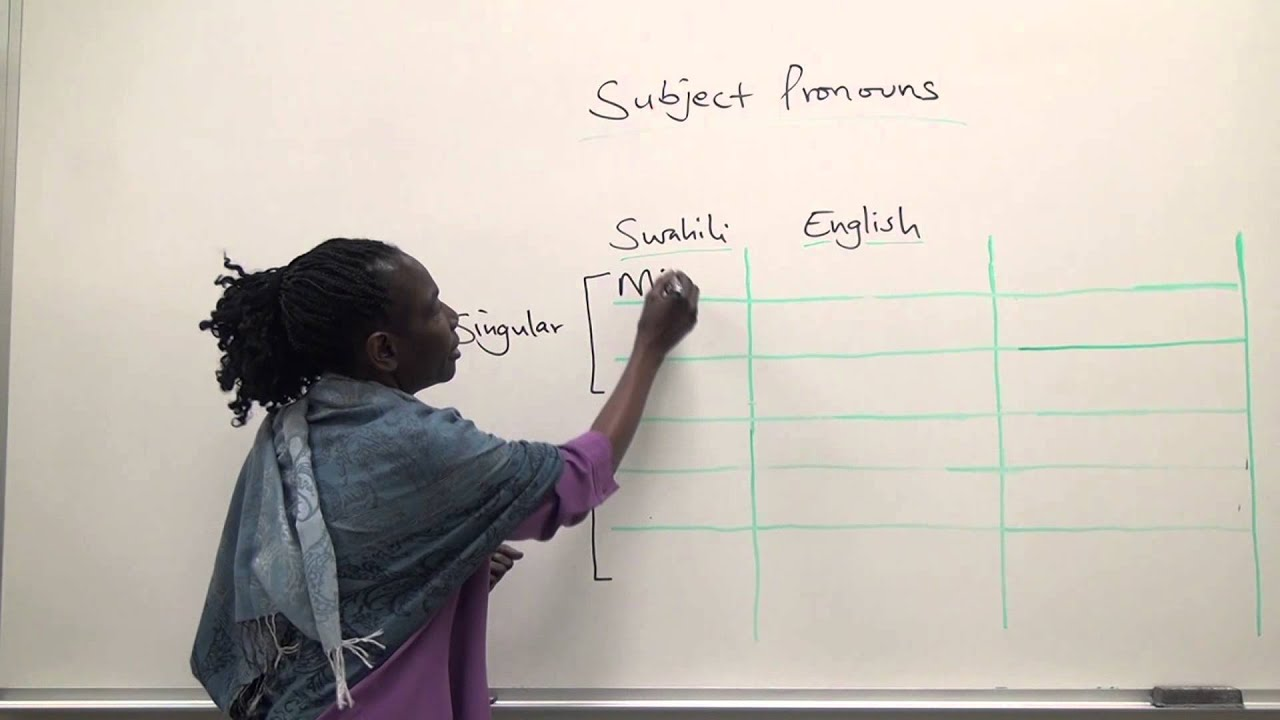 Subject Pronouns
Swahili English
Mi
Singular